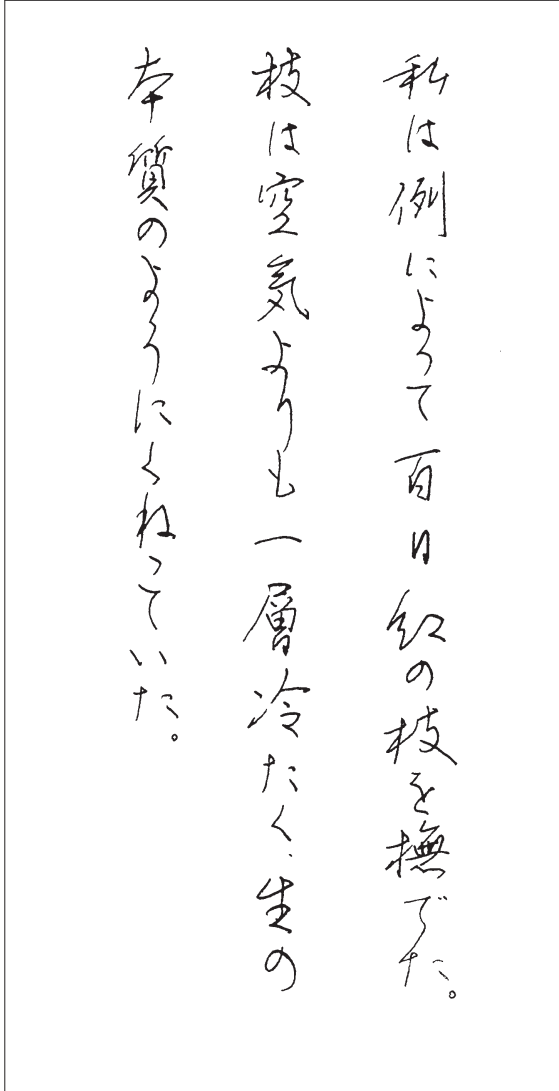 私は例によって百日紅の枝を撫でた。
枝は空気よりも一層冷たく、生の
本質のようにくねっていた。